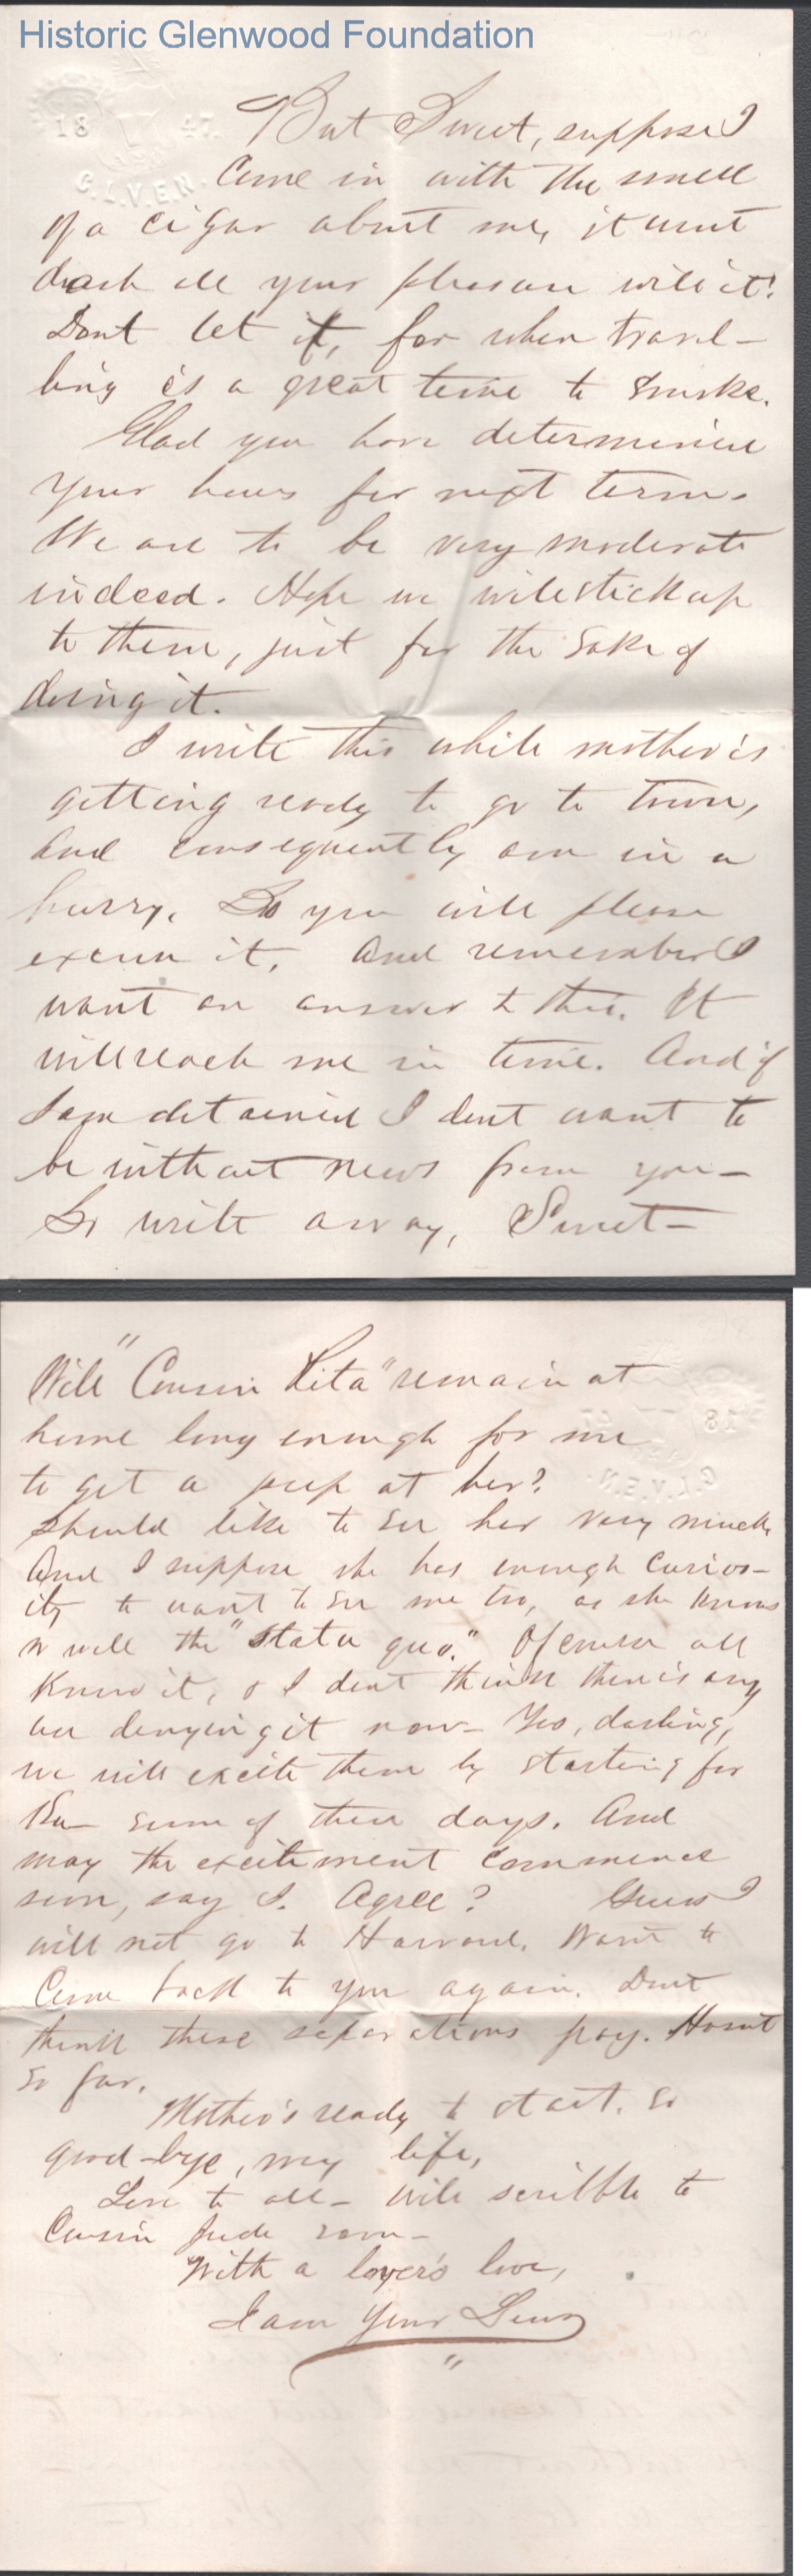 Historic Glenwood Foundation
18 47.
G.L.V.E.N.
But Sweet, suppose I
come in with the smell
of a cigar about me, it wont
dash all your pleasure will it?
Dont let it, for when travel-
ling is a great time to smoke.
Glad you have determined
your hours for next term.
We are to be very moderate
indeed. Hope we will stick up
to them, just for the sake of
doing it.
I write this while mother is
getting ready to go to town,
and consequently am in a
hurry. So you will please
excuse it. And remember I
want an answer to this. It
will reach me in time. And if
I am detained I dont want to
be without news from you-
So write away, Sweet-
Will "Cousin Lita" remain at
home long enough for me
to get a peep at her?
Should like to see her very much,
And I suppose she has enough curios-
ity to want to see me too, as she knows
so well the "statu quo." Of course all
know it, & I dont think there is any
use denying it now- Yes, darling,
we will excite them by starting for
some of these days. And
may the excitement commence
soon, say I. Agree? Guess I
will not go to Harvard. Want to
come back to you again. Dont
think these separations pay. Hasnt
so far.
Mother's ready to start. So
good-bye, my life,
Love to all- Will scribble to
Cousin Jude soon-
With a lover's love,
I am Your